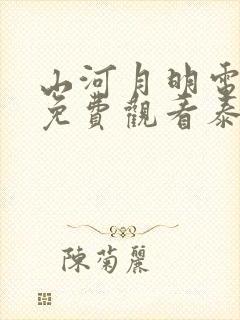 山河月明電
免費觀看泰
陳菊麗